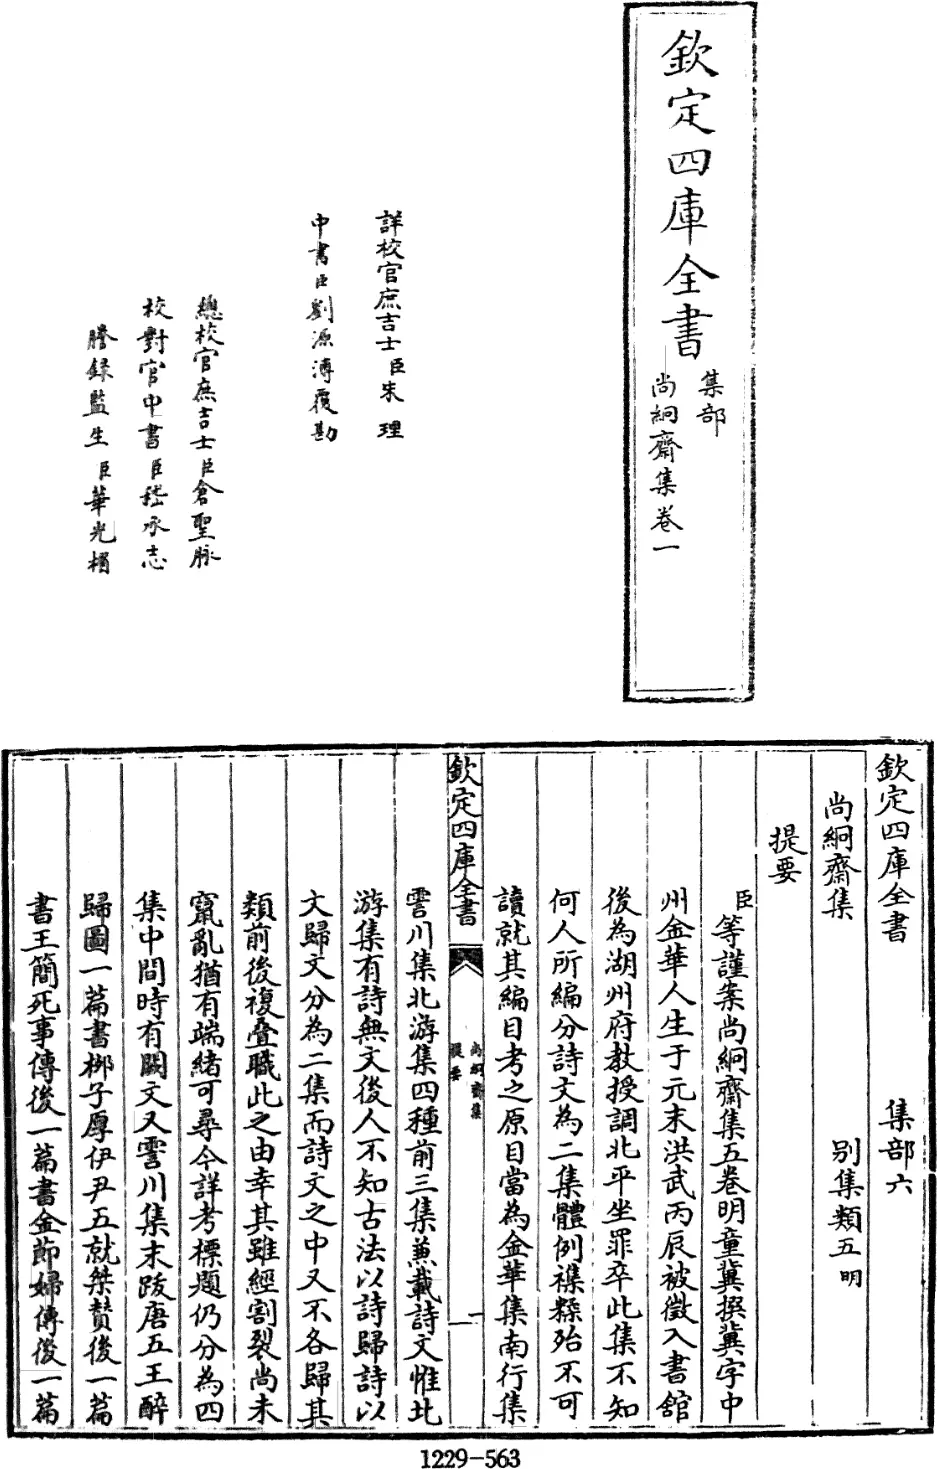 欽定四庫全書
集部
尚絅齋集卷一
詳校官庶吉士臣朱理
中書臣劉源溥覆勘
總校官庶吉士臣倉聖脉
校對官中書臣嵇承志
謄錄監生臣華光楣
欽定四庫全書 集部六
尚絅齋集 別集類五明
提要
臣等謹案尚絅齋集五卷明童冀撰冀字中
州金華人生于元末洪武丙辰被徵入書館
後為湖州府教授調北平坐罪卒此集不知
何人所編分詩文為二集體例襍糅殆不可
讀就其編目考之原目當為金華集南行集
欽定四庫全書
尚絅齋集
提要
一
霅川集北游集四種前三集兼載詩文惟北
游集有詩無文後人不知古法以詩歸詩以
文歸文分為二集而詩文之中又不各歸其
類前後複叠職此之由幸其雖經割裂尚未
竄亂猶有端緒可尋今詳考標題仍分為四
集中間時有闕文又霅川集末跋唐五王醉
歸圖一篇書柳子厚伊尹五就桀贊後一篇
書王簡死事傳後一篇書金節婦傳後一篇
1229-563